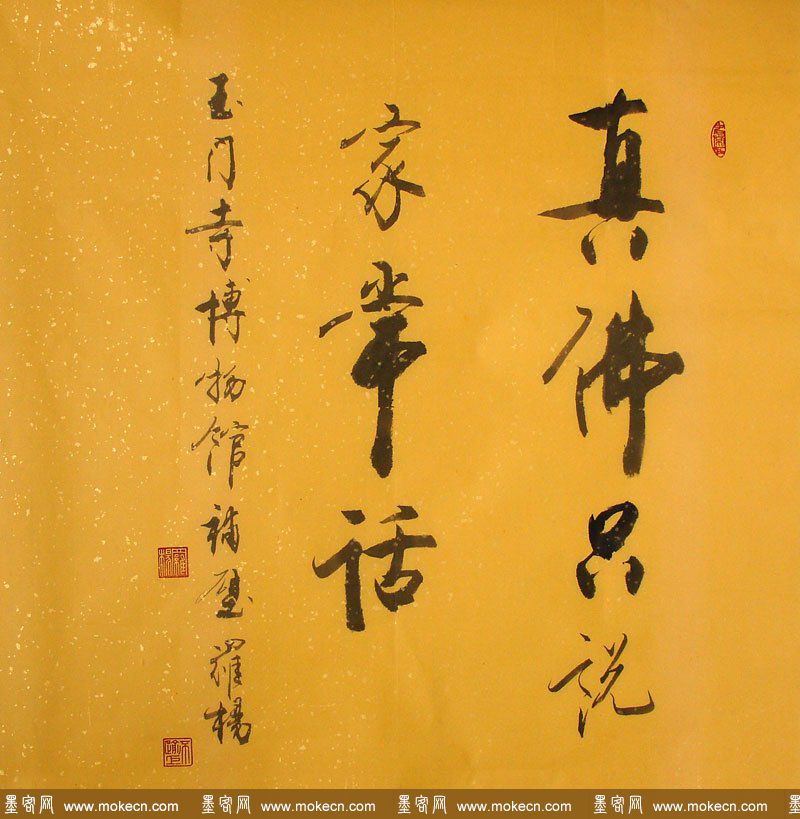 真佛只说
家常话
玉门寺博物馆補壁 羅楊
羅楊
墨客网 www.mokecn.com 墨客网 www.mokecn.com 墨客网 www.mokecn.com 墨客网 www.mokecn.com